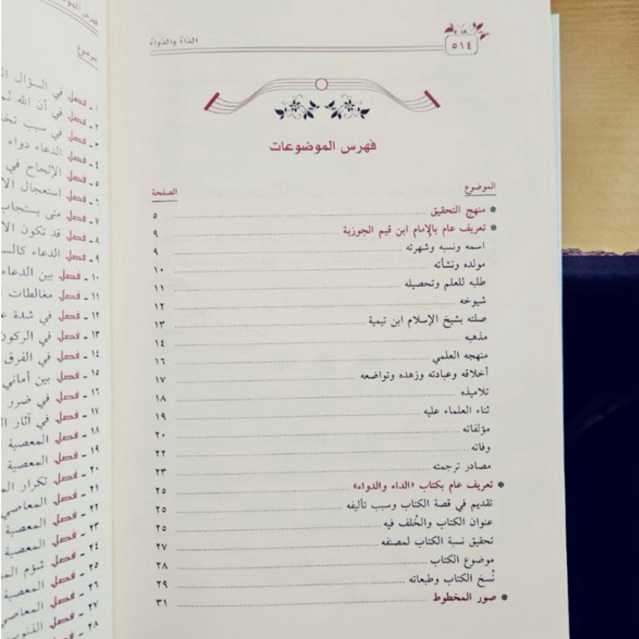 ٥١٤
الداء والدواء
فهرس الموضوعات
الموضوع الصفحة
● منهج التحقيق ٥
● تعريف عام بالإمام ابن قيم الجوزية ٩
اسمه ونسبه وشهرته ٩
مولده ونشأته ١٠
طلبه للعلم وتحصيله ١١
شيوخه ١٢
صلته بشيخ الإسلام ابن تيمية ١٣
مذهبه ١٤
منهجه العلمي ١٦
أخلاقه وعبادته وزهده وتواضعه ١٧
تلاميذه ١٨
ثناء العلماء عليه ١٩
مؤلفاته ٢٠
وفاته ٢٢
مصادر ترجمته ٢٣
● تعريف عام بكتاب «الداء والدواء» ٢٥
تقديم في قصة الكتاب وسبب تأليفه ٢٥
عنوان الكتاب والخُلف فيه ٢٥
تحقيق نسبة الكتاب لمصنفه ٢٧
موضوع الكتاب ٢٨
نُسخ الكتاب وطبعاته ٢٩
● صور المخطوط ٣١
الموضوع
١ - فصل في السؤال
٢ - فصل في أن الله
٣ - فصل في سبب
٤ - فصل الدعاء دواء
٥ - فصل الإلحاح في
٦ - فصل استعجال
٧ - فصل متى يستجاب
٨ - فصل قد تكون
٩ - فصل الدعاء
١٠ - فصل بين الدعاء
١١ - فصل مغالطات
١٢ - فصل في شدة
١٣ - فصل في الركون
١٤ - فصل في الفرق
١٥ - فصل بين أماني
١٦ - فصل في ضرر
١٧ - فصل في آثار
١٨ - فصل المعصية
١٩ - فصل المعصية
٢٠ - فصل تكرار
٢١ - فصل المعاصي
٢٢ - فصل المعصية
٢٣ - فصل المعصية
٢٤ - فصل شؤم
٢٥ - فصل المعصية
٢٦ - فصل المعاصي
٢٧ - فصل الذنوب
٢٨